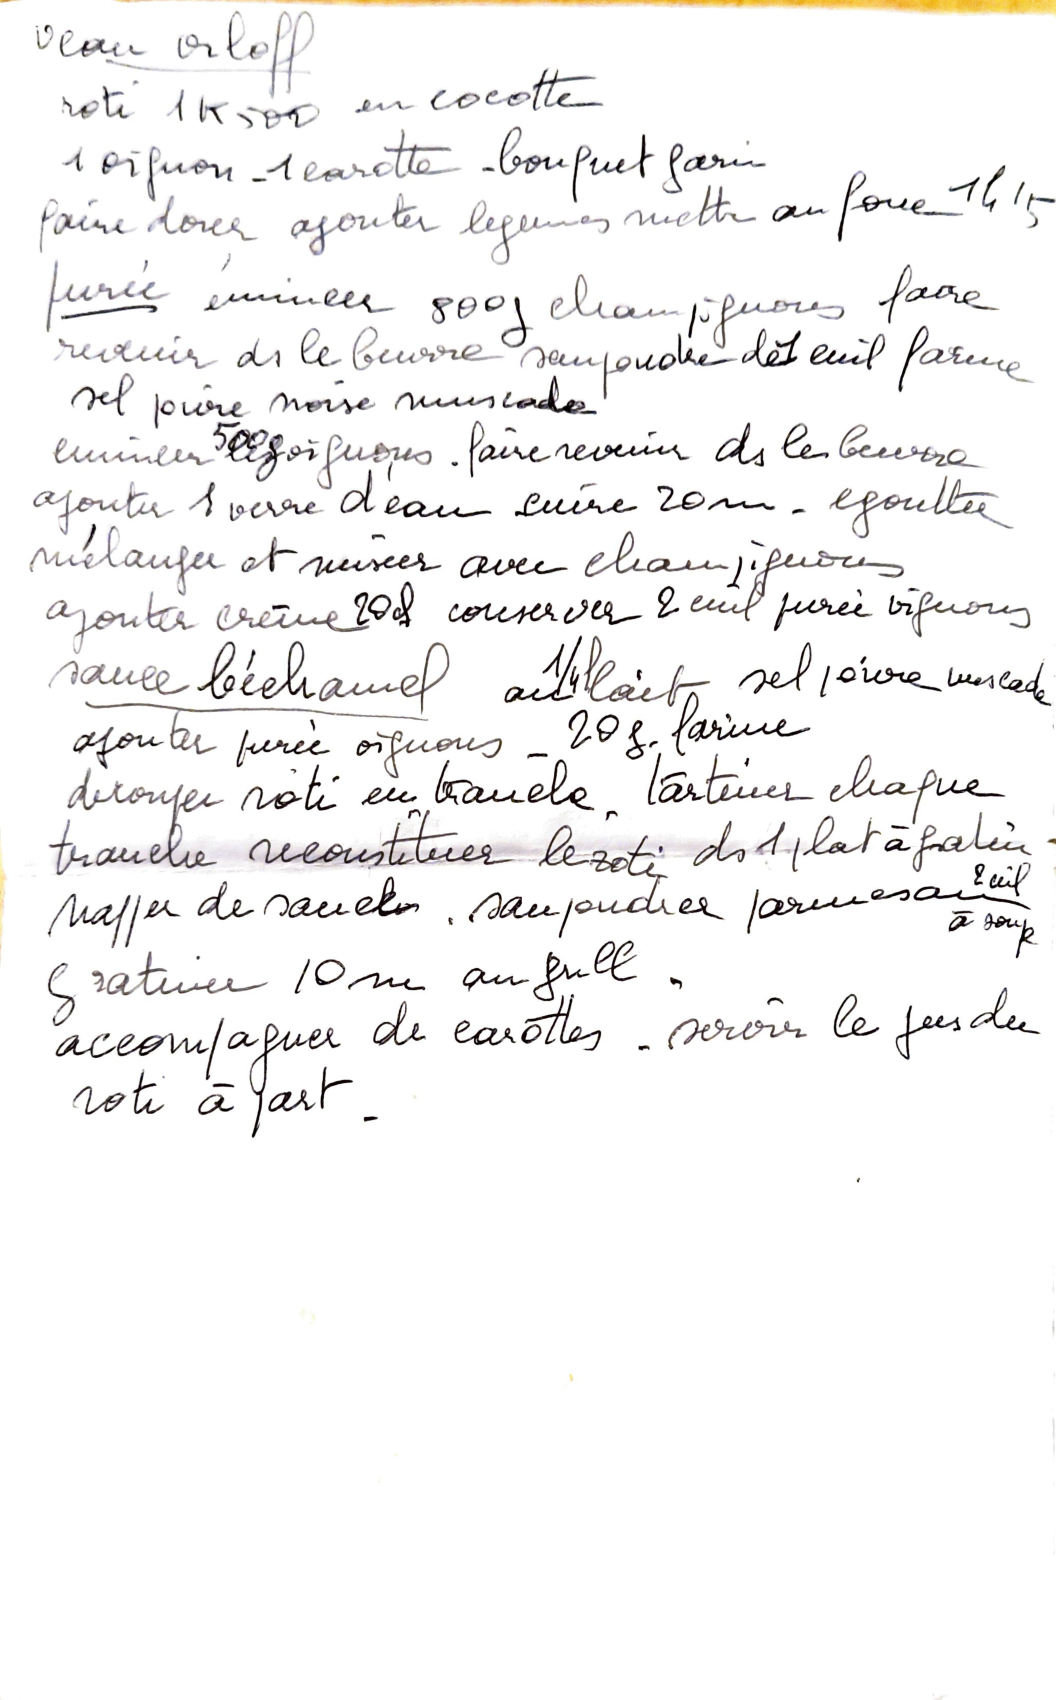 veau orloff
roti 1K500 en cocotte
1 oignon - 1 carotte - bouquet garni
faire dorer ajouter legumes mettre au four 1h15
purée émincer 800g champignons faire
revenir ds le beurre saupoudrer de 1 cuil farine
sel poivre noise muscade
emincer 500g oignons. faire revenir ds le beurre
ajouter 1 verre d'eau cuire 20 m - egoutter
mélanger et mixer avec champignons
ajouter crème conserver 2 cuil purée oignons
sauce béchamel au 1/4 l lait, sel poivre muscade
ajouter purée oignons - 20 g. farine
decouper rôti en tranche. tartiner chaque
tranche reconstituer le roti ds 1 plat à gratin -
napper de sauce. saupoudrer parmesan 2 cuil
à soupe
gratiner 10 m au grill.
accompagner de carottes - servir le jus du
roti à part -